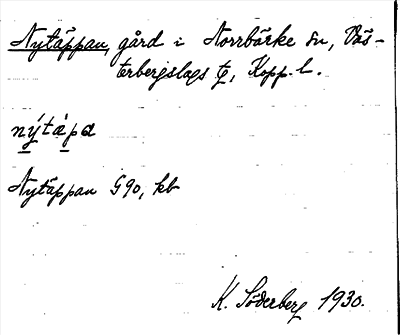 Nytäppan, gård i Norrbärke sn, Väs-
terbergslags tg, Kopp. l.
nýtà̱pa
Nytäppan G 90, kb
K. Söderberg 1930.